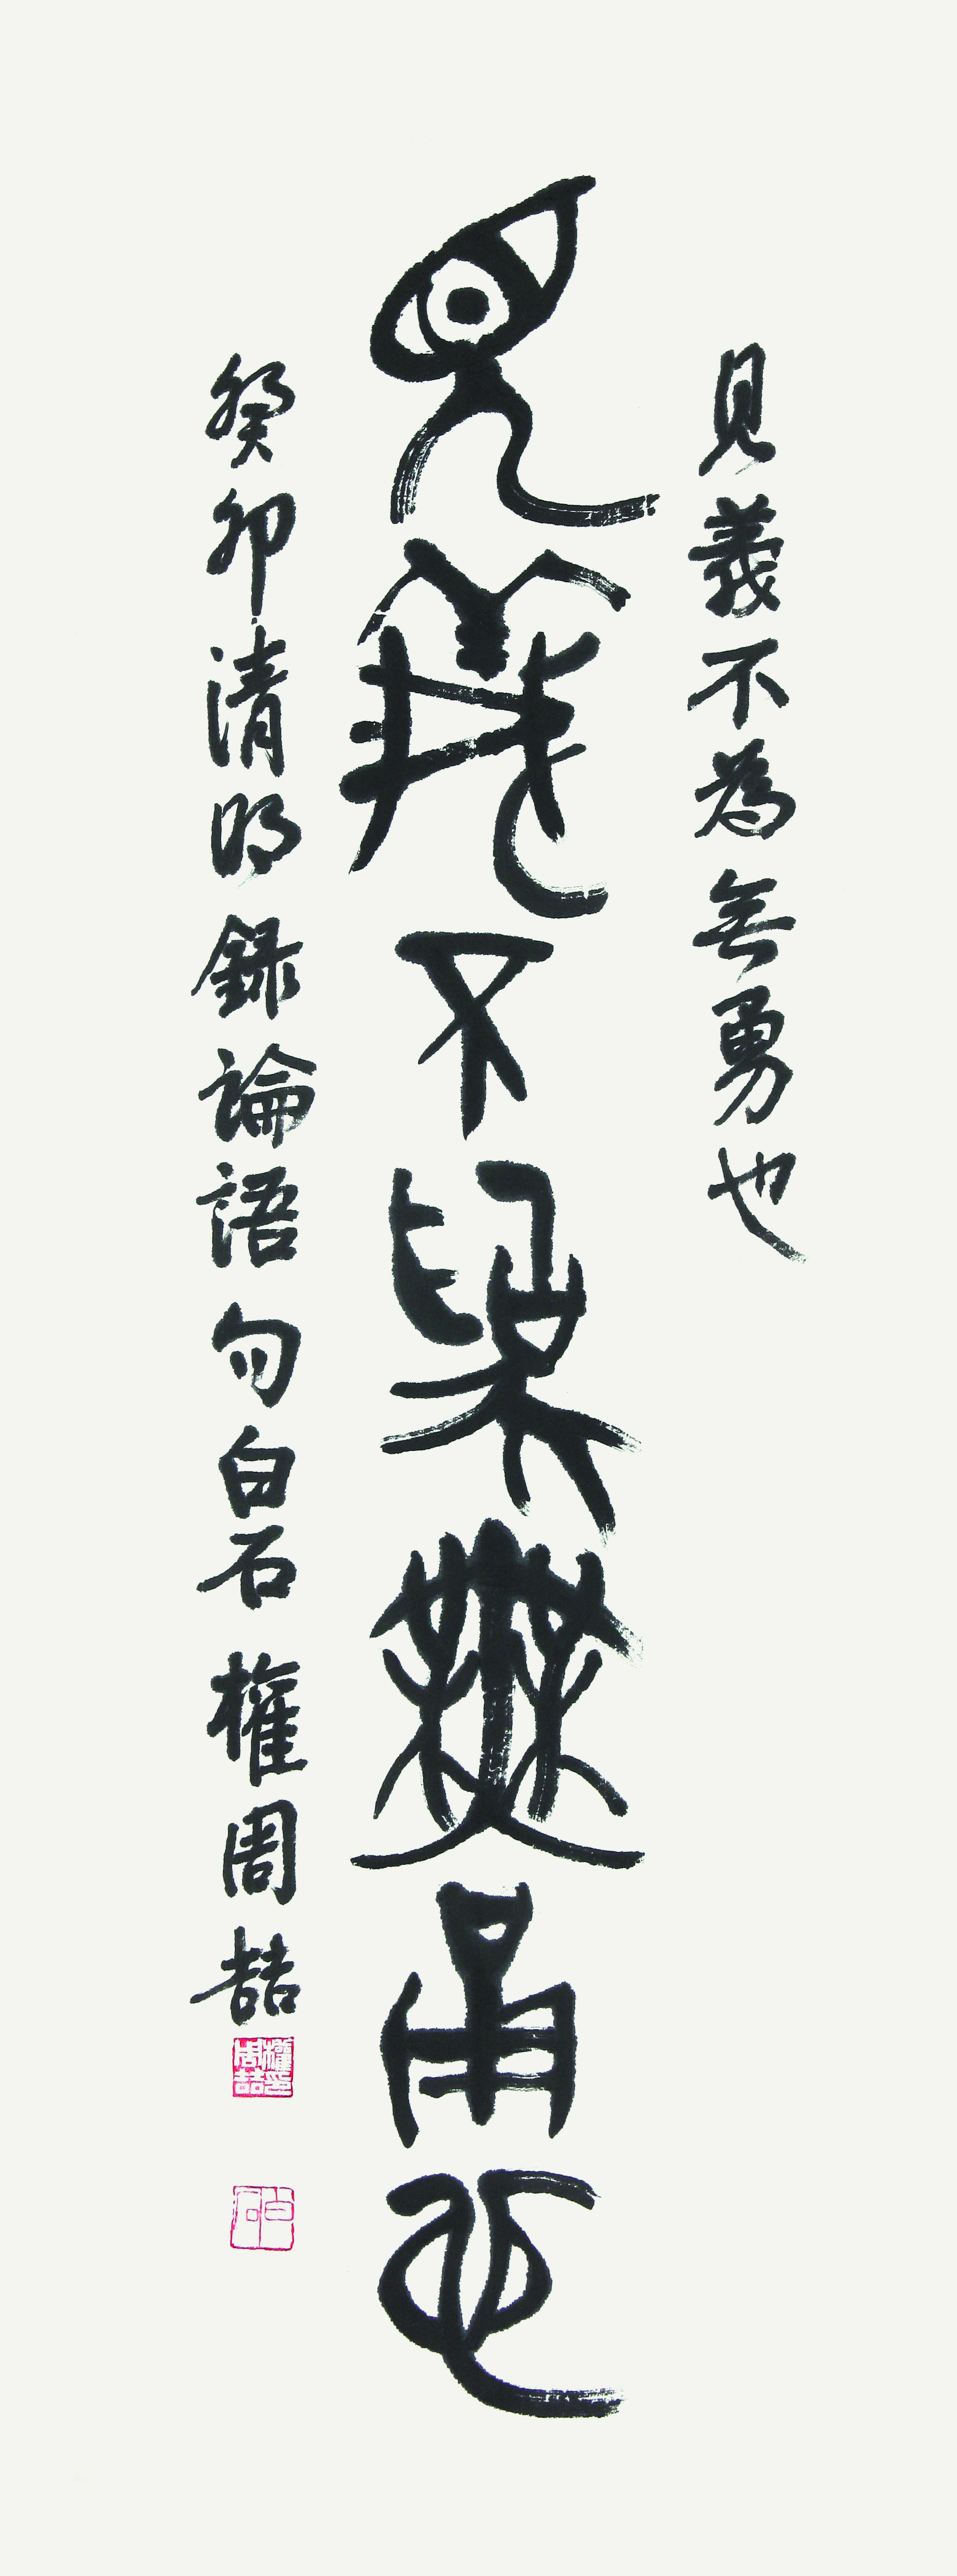 見義不為無勇也
見義不為無勇也
癸卯清明錄論語句白石權周喆
權周喆印
白石